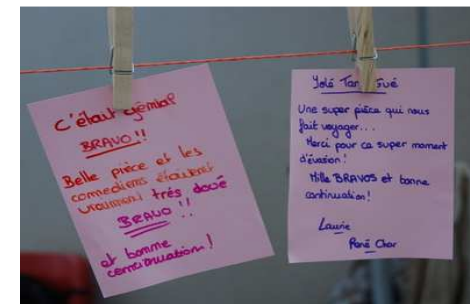 C'était génial
BRAVO !!
Belle pièce et les
comediens étaient
vraiment trés doué
BRAVO !!
et bonne
continuation !
Yolé Tam Gué
Une super pièce qui nous
fait voyager...
Merci pour ce super moment
d'évasion !
Mille BRAVOS et bonne
continuation !
Laurie
René Char